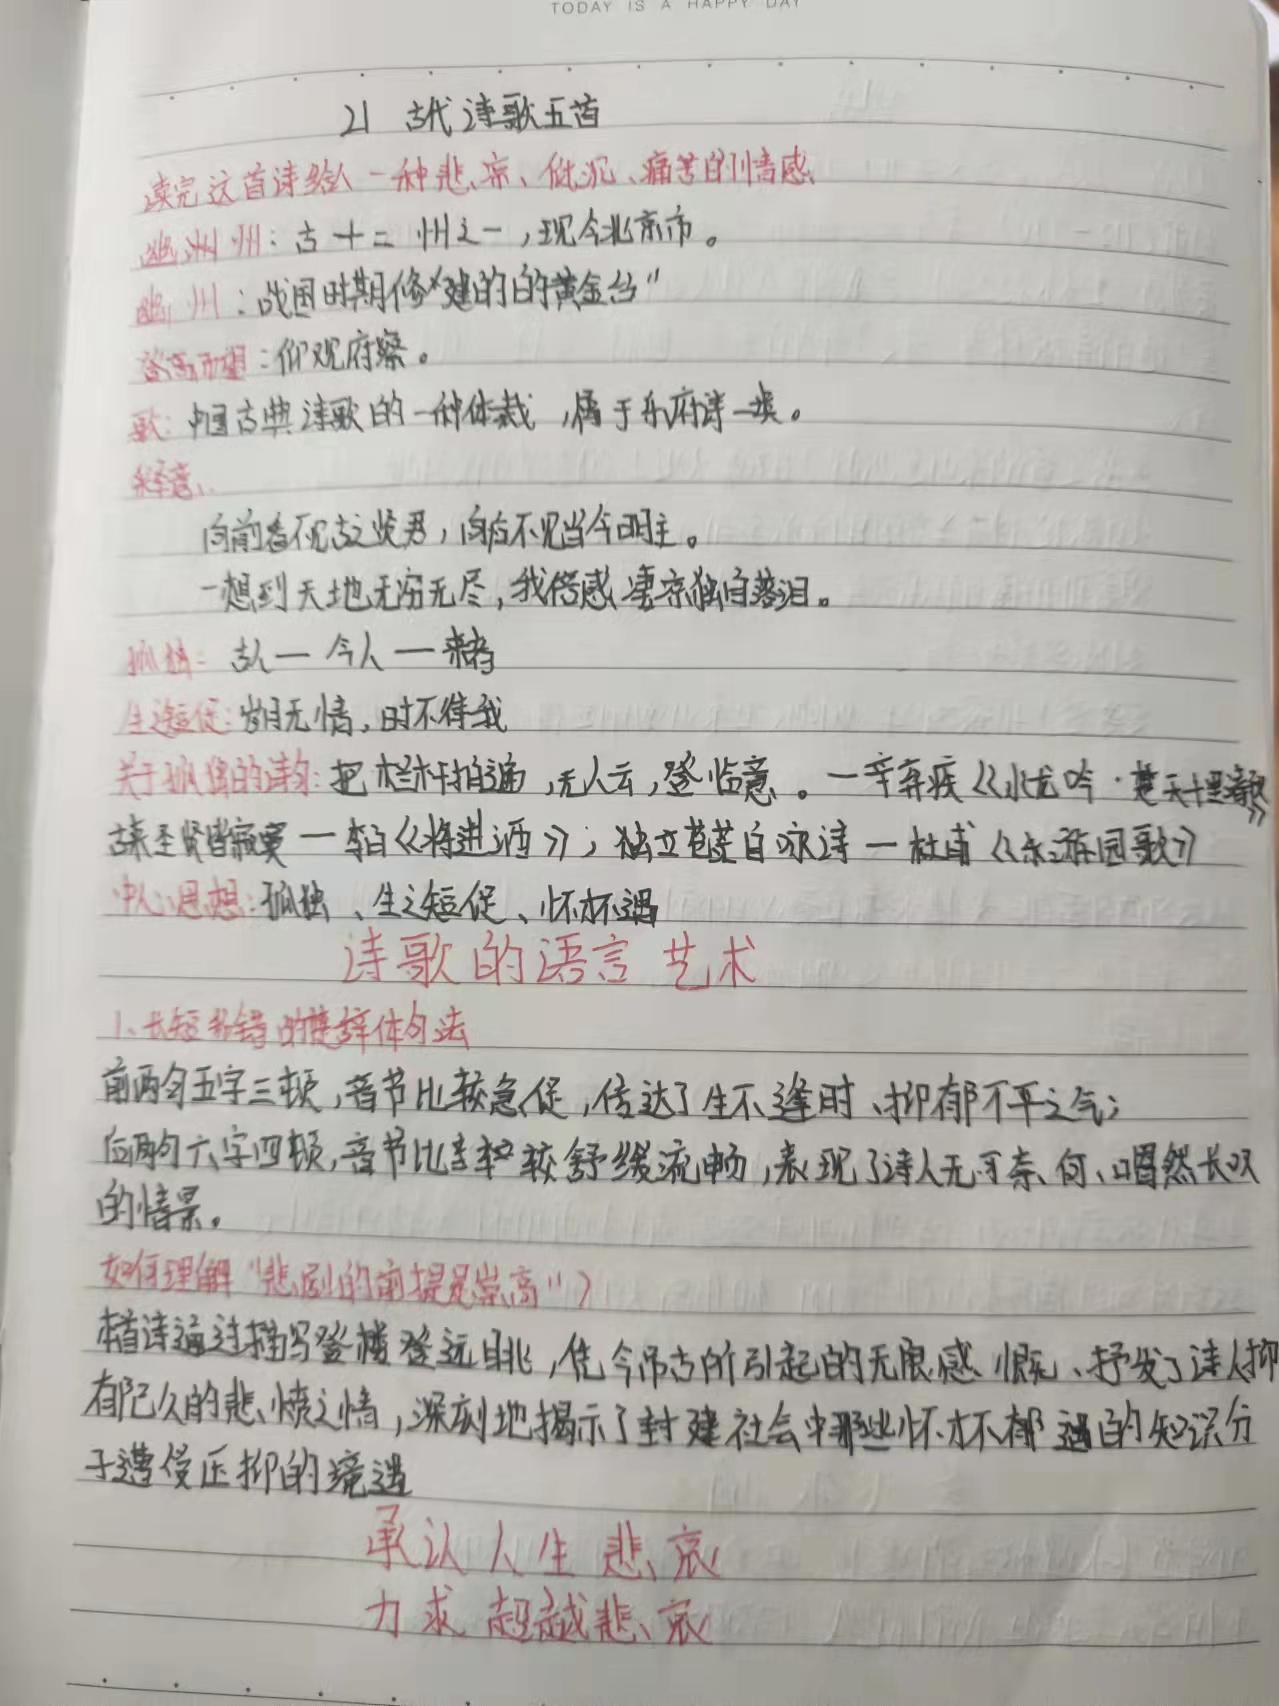 TODAY IS A HAPPY DAY
21 古代诗歌五首
读完这首诗给人一种悲凉、低沉、痛苦的情感
幽州州：古十二州之一，现今北京市。
幽州：战国时期修“建的的黄金台”
登高而望：仰观府察。
歌：中国古典诗歌的一种体裁，属于乐府诗一类。
释意：
向前看不见古之贤君，向后不见当今明主。
一想到天地无穷无尽，我倍感凄凉独自落泪。
孤独：古人一今人一来者
生之短促：岁月无情，时不待我
关于孤独的诗句：把栏杆拍遍，无人云，登临意。一辛弃疾《水龙吟·楚天千里清秋》
古来圣贤皆寂寞一李白《将进酒》；独立苍茫自咏诗一杜甫《乐游园歌》
中心思想：孤独、生之短促、怀才不遇
诗歌的语言艺术
1、长短不错的楚辞体句法
前两句五字三顿，音节比较急促，传达了生不逢时、抑郁不平之气；
后两句六字四顿，音节比较舒缓流畅，表现了诗人无可奈何、喟然长叹
的情景。
如何理解“悲剧的前提是崇高”？
本首诗通过描写登楼登远眺，凭今吊古所引起的无限感慨、抒发了诗人抑
郁已久的悲愤之情，深刻地揭示了封建社会中那些怀才不遇的知识分
子遭受压抑的境遇
承认人生悲哀
力求超越悲哀